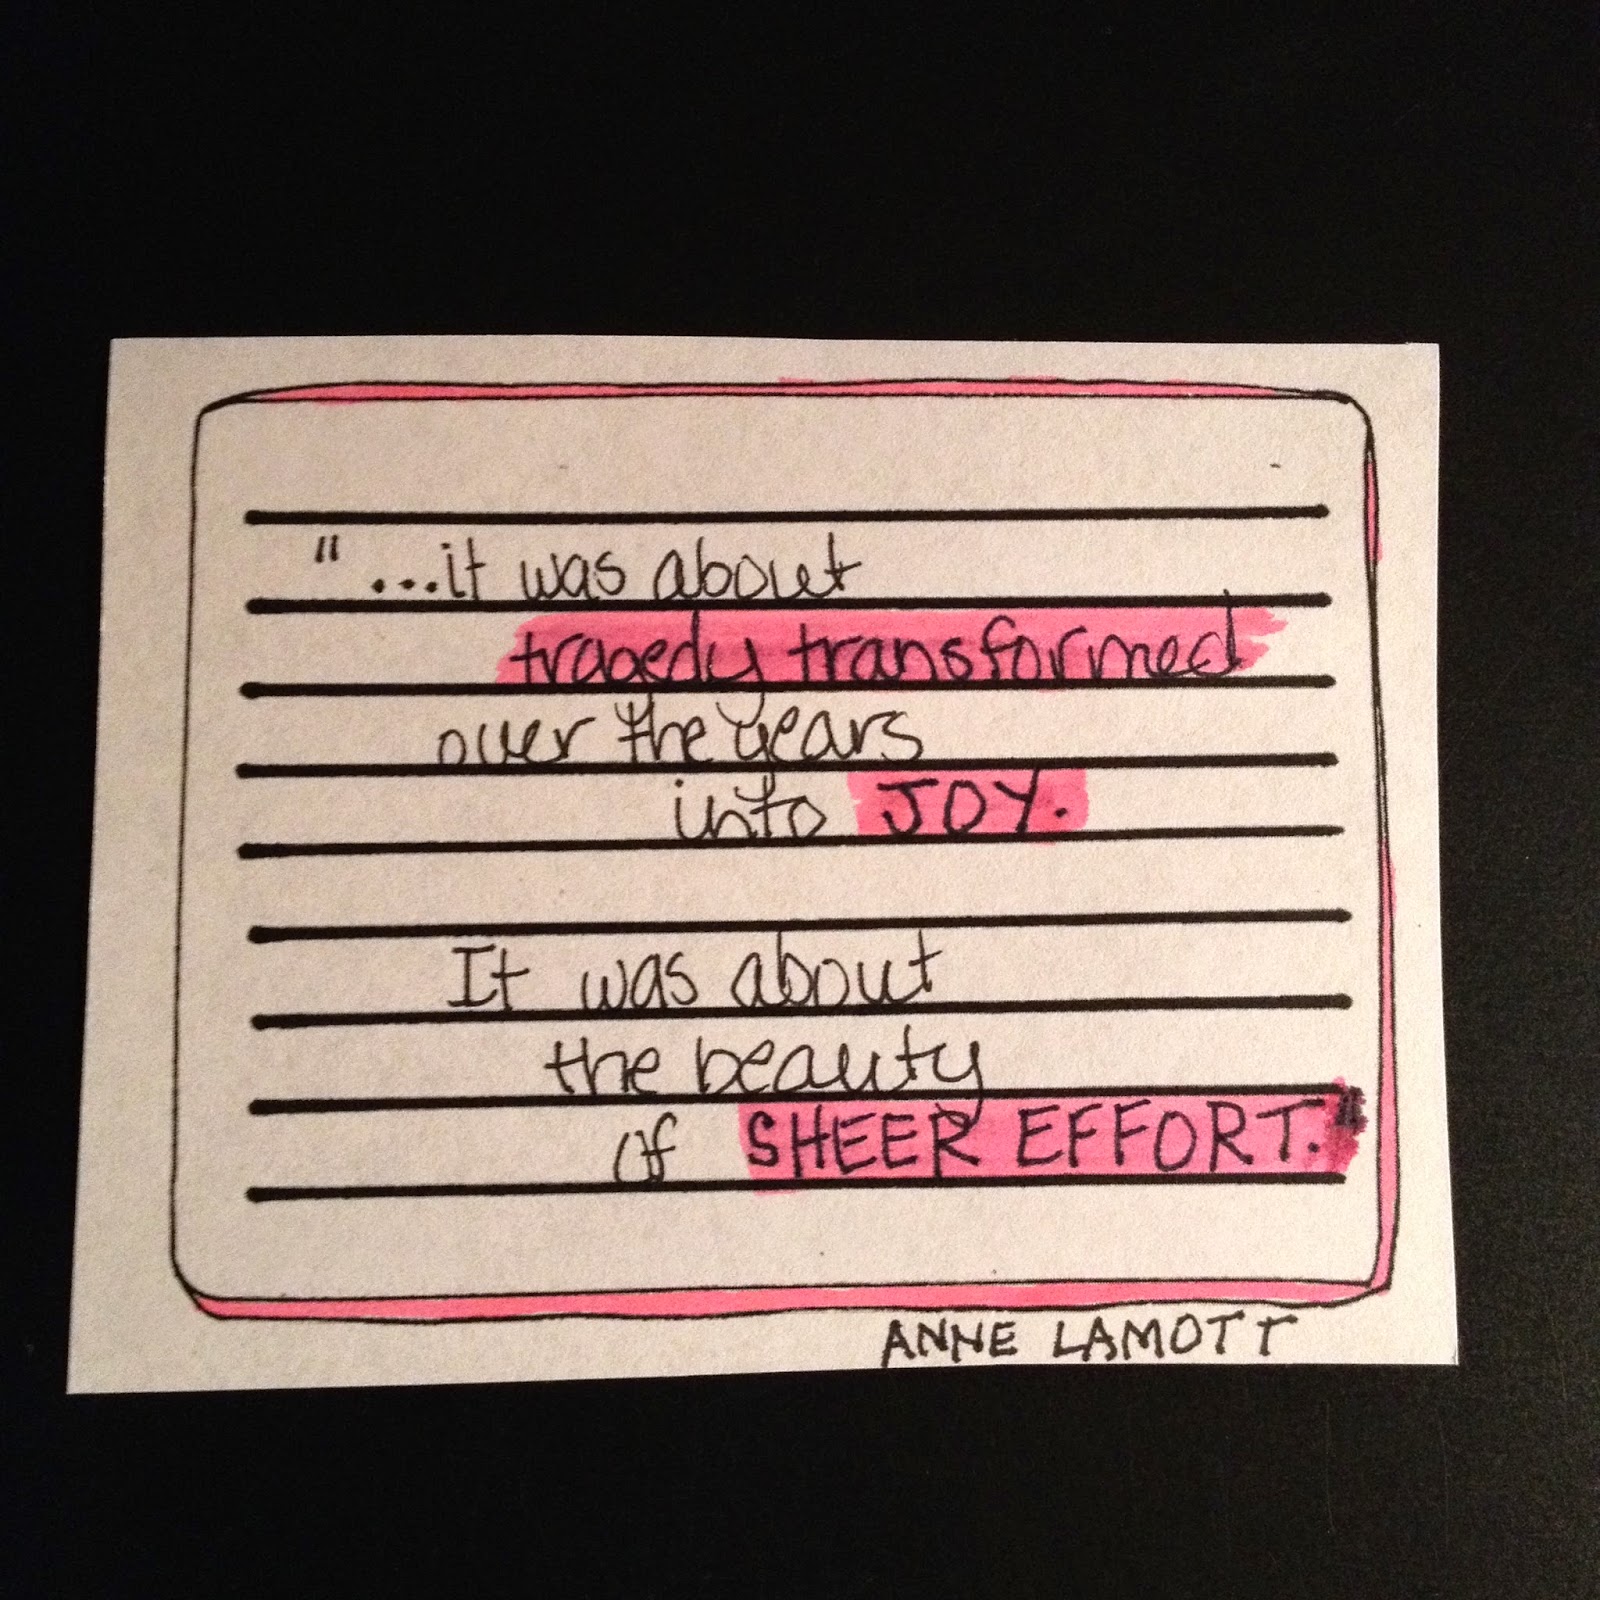 "...it was about
tragedy transformed
over the years
into JOY.
It was about
the beauty
of SHEER EFFORT."
ANNE LAMOTT